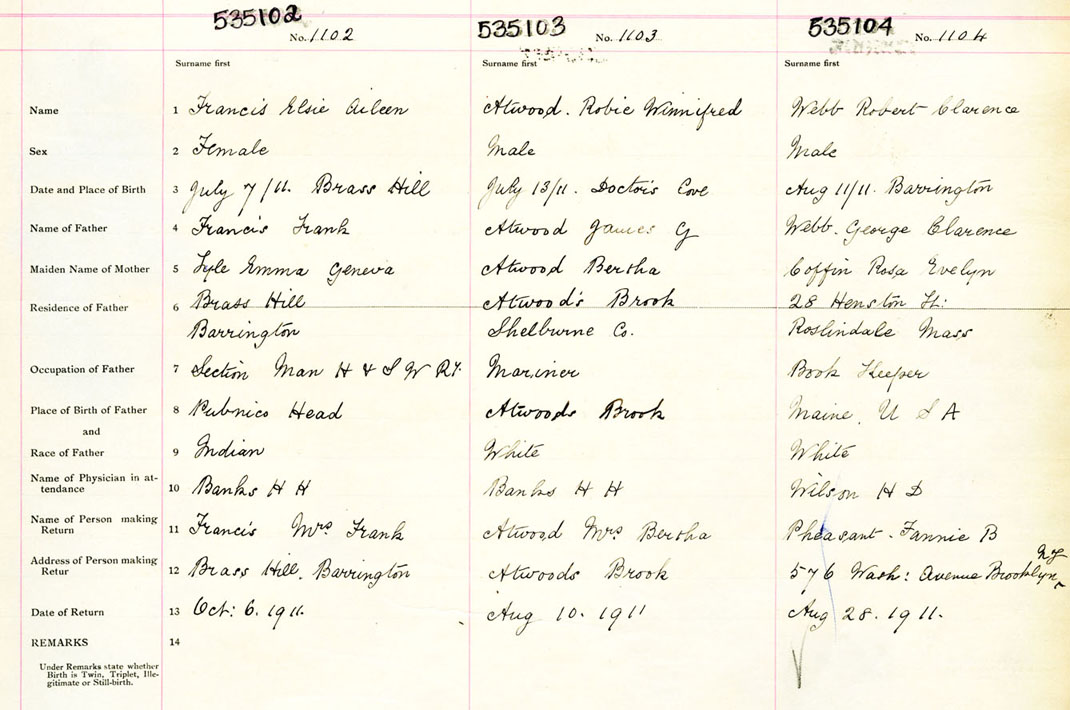 535102 No. 1102 535103 No. 1103 535104 No. 1104
Surname first Surname first Surname first
Name 1 Francis Elsie Aileen Atwood. Robie Winnifred Webb Robert Clarence
Sex 2 Female Male Male
Date and Place of Birth 3 July 7/11. Brass Hill July 13/11. Doctors Cove Aug 11/11. Barrington
Name of Father 4 Francis Frank Atwood James G Webb. George Clarence
Maiden Name of Mother 5 Lyle Emma Geneva Atwood Bertha Coffin Rosa Evelyn
Residence of Father 6 Brass Hill Atwood's Brook 28 St:
Barrington Shelburne Co. Roslindale Mass
Occupation of Father 7 Section Man H & S W Ry. Mariner Book Keeper
Place of Birth of Father 8 Pubnico Head Atwoods Brook Maine, U S A
and
Race of Father 9 Indian White White
Name of Physician in at-
tendance 10 Banks H H Banks H H Wilson H D
Name of Person making
Return 11 Francis Mrs Frank Atwood Mrs Bertha Pheasant. Fannie B
Address of Person making
Retur 12 Brass Hill. Barrington Atwoods Brook 576 Wash: Avenue Brooklyn, NY
Date of Return 13 Oct: 6. 1911. Aug 10. 1911 Aug 28. 1911.
REMARKS 14
Under Remarks state whether
Birth is Twin, Triplet, Ille-
gitimate or Still-birth.